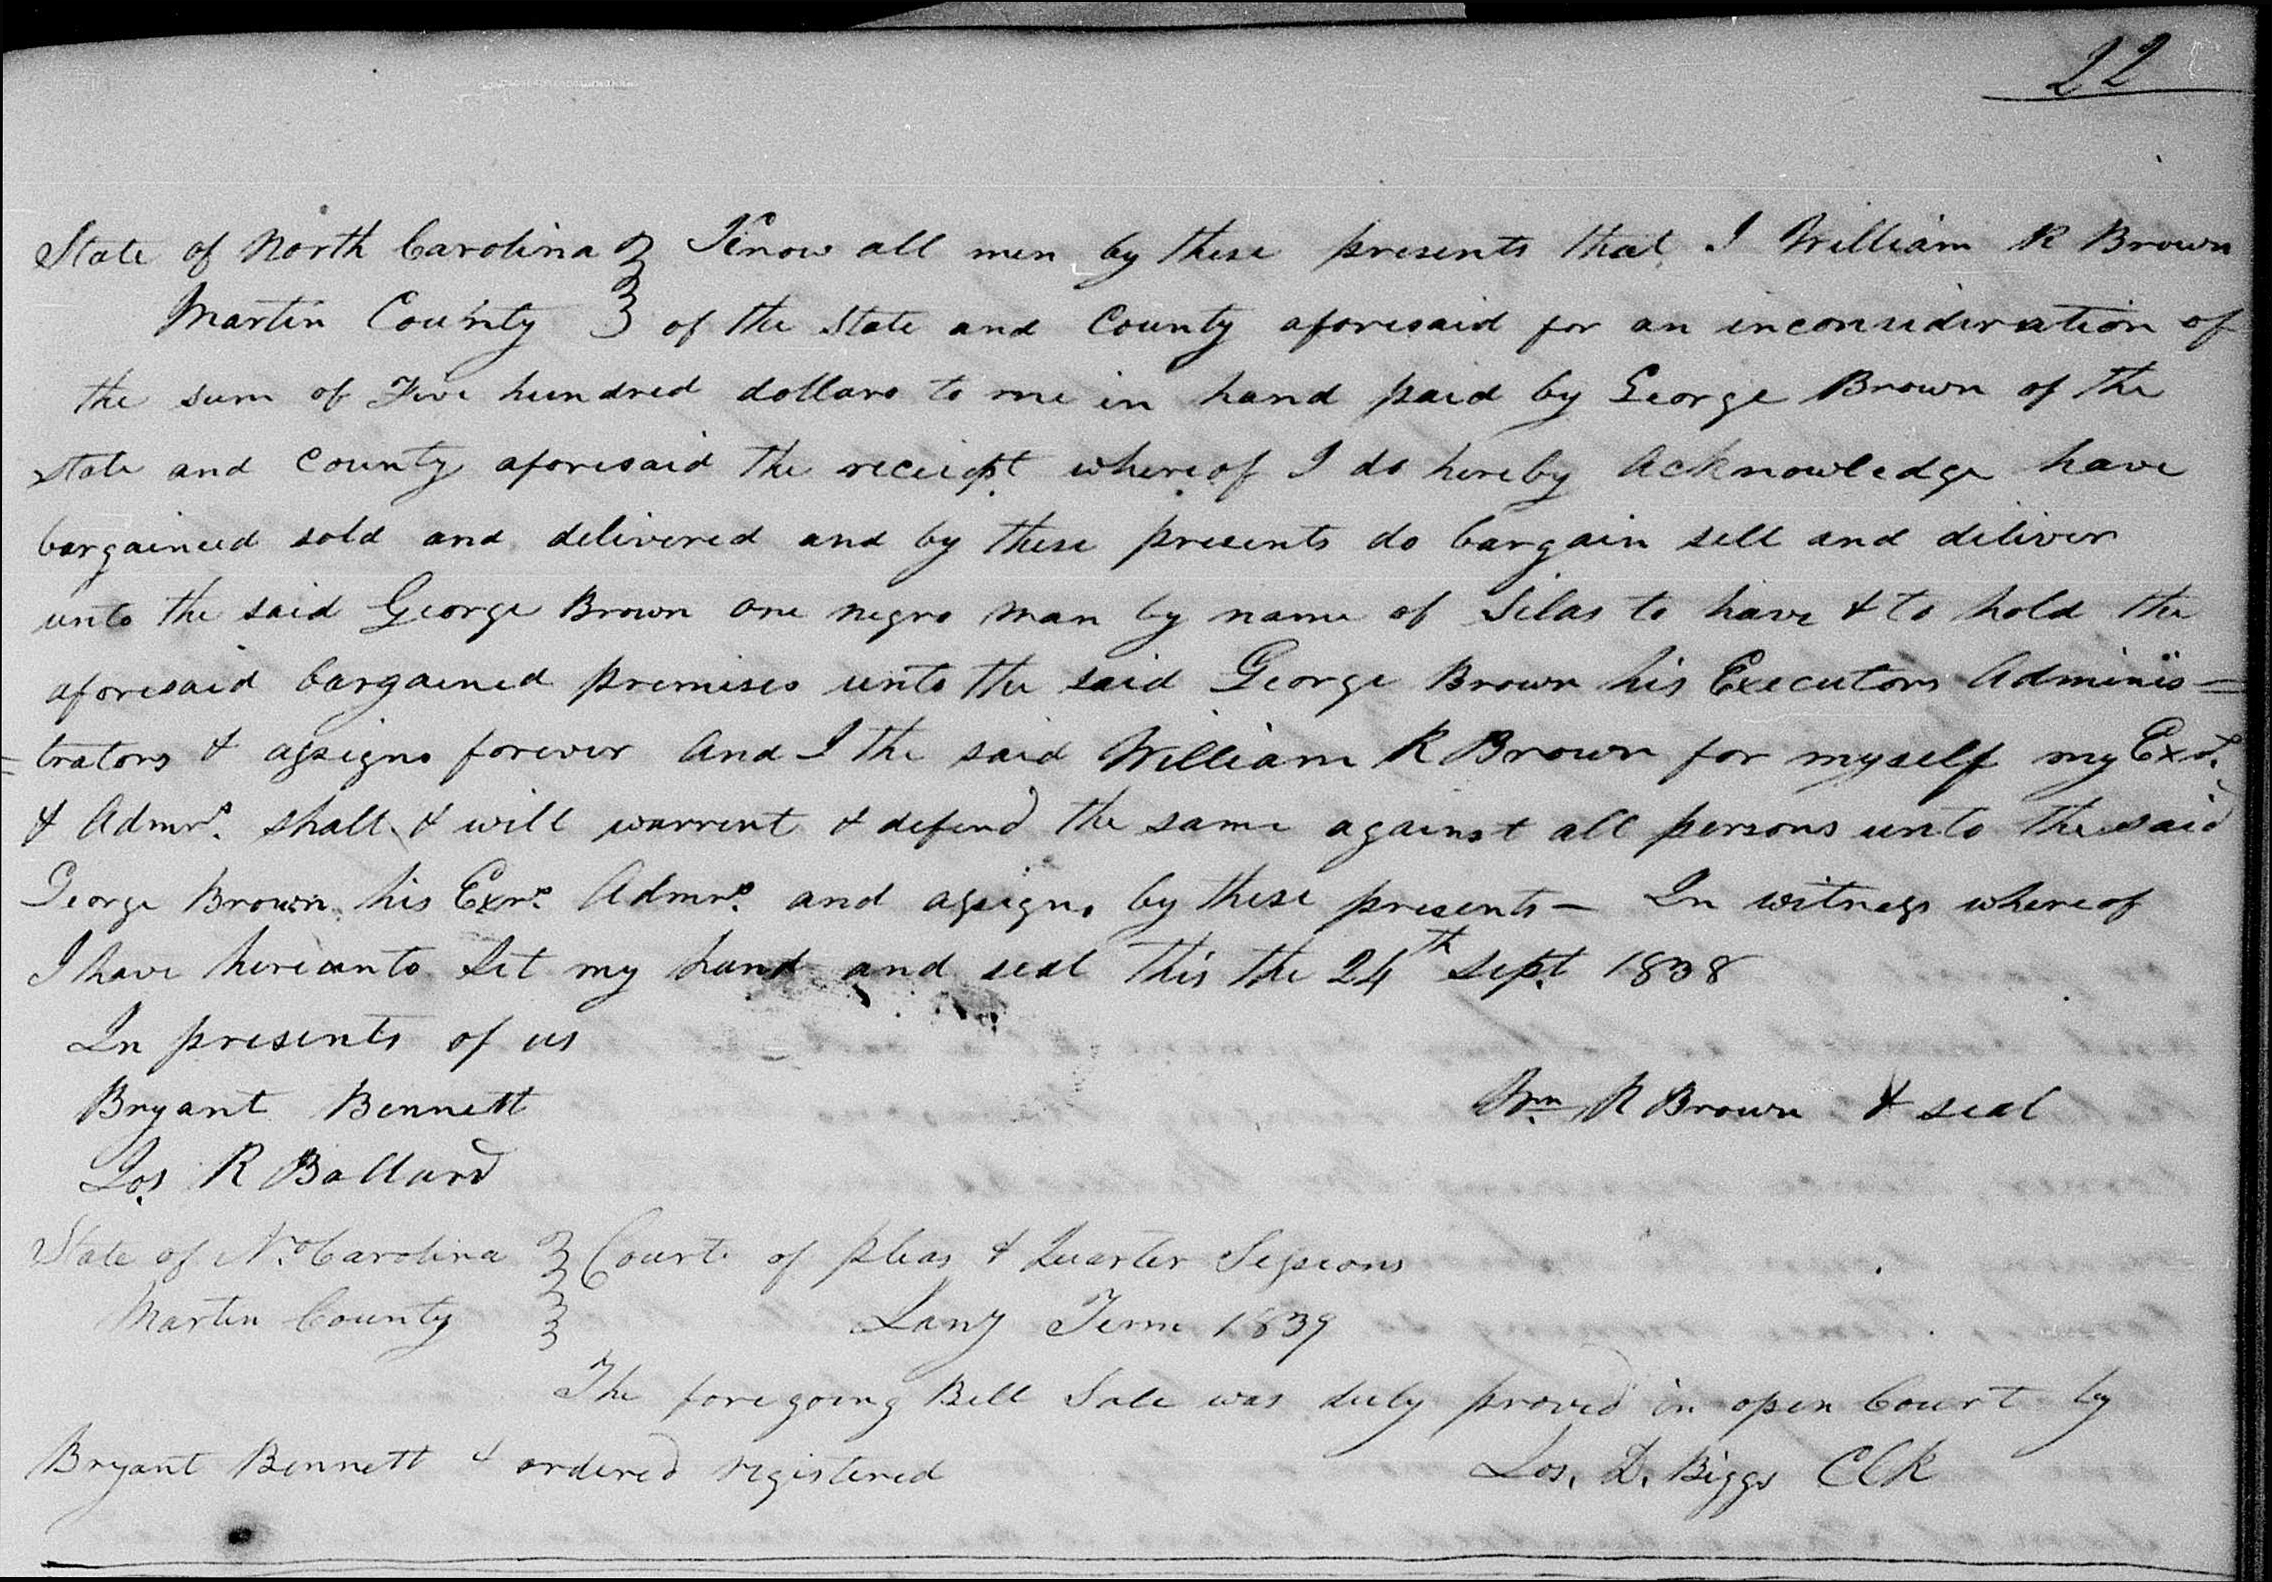 22
State of North Carolina } Know all men by these presents that I William R Brown
Martin County } of the State and County aforesaid for an inconsideration of
the sum of Five hundred dollars to me in hand paid by George Brown of the
State and County aforesaid the receipt whereof I do hereby acknowledge have
bargained sold and delivered and by these presents do bargain sell and deliver
unto the said George Brown one negro man by name of Silas to have & to hold the
aforesaid bargained premises unto the said George Brown his Executors Adminis=
=trators & assigns forever And I the said William R Brown for myself my Exrs.
& Admrs. shall & will warrent & defend the same against all persons unto the said
George Brown his Exrs. Admrs. and assigns by these presents — In witness whereof
I have hereunto set my hand and seal this the 24th Sept. 1838
In presents of us
Bryant Bennett Wm. R Brown & seal
Jos. R Ballard
State of No. Carolina } Court of pleas & Quarter Sessions
Martin County } Jany Term 1839
The foregoing Bill Sale was duly proved in open Court by
Bryant Bennett & ordered registered Jos. D. Biggs Clk